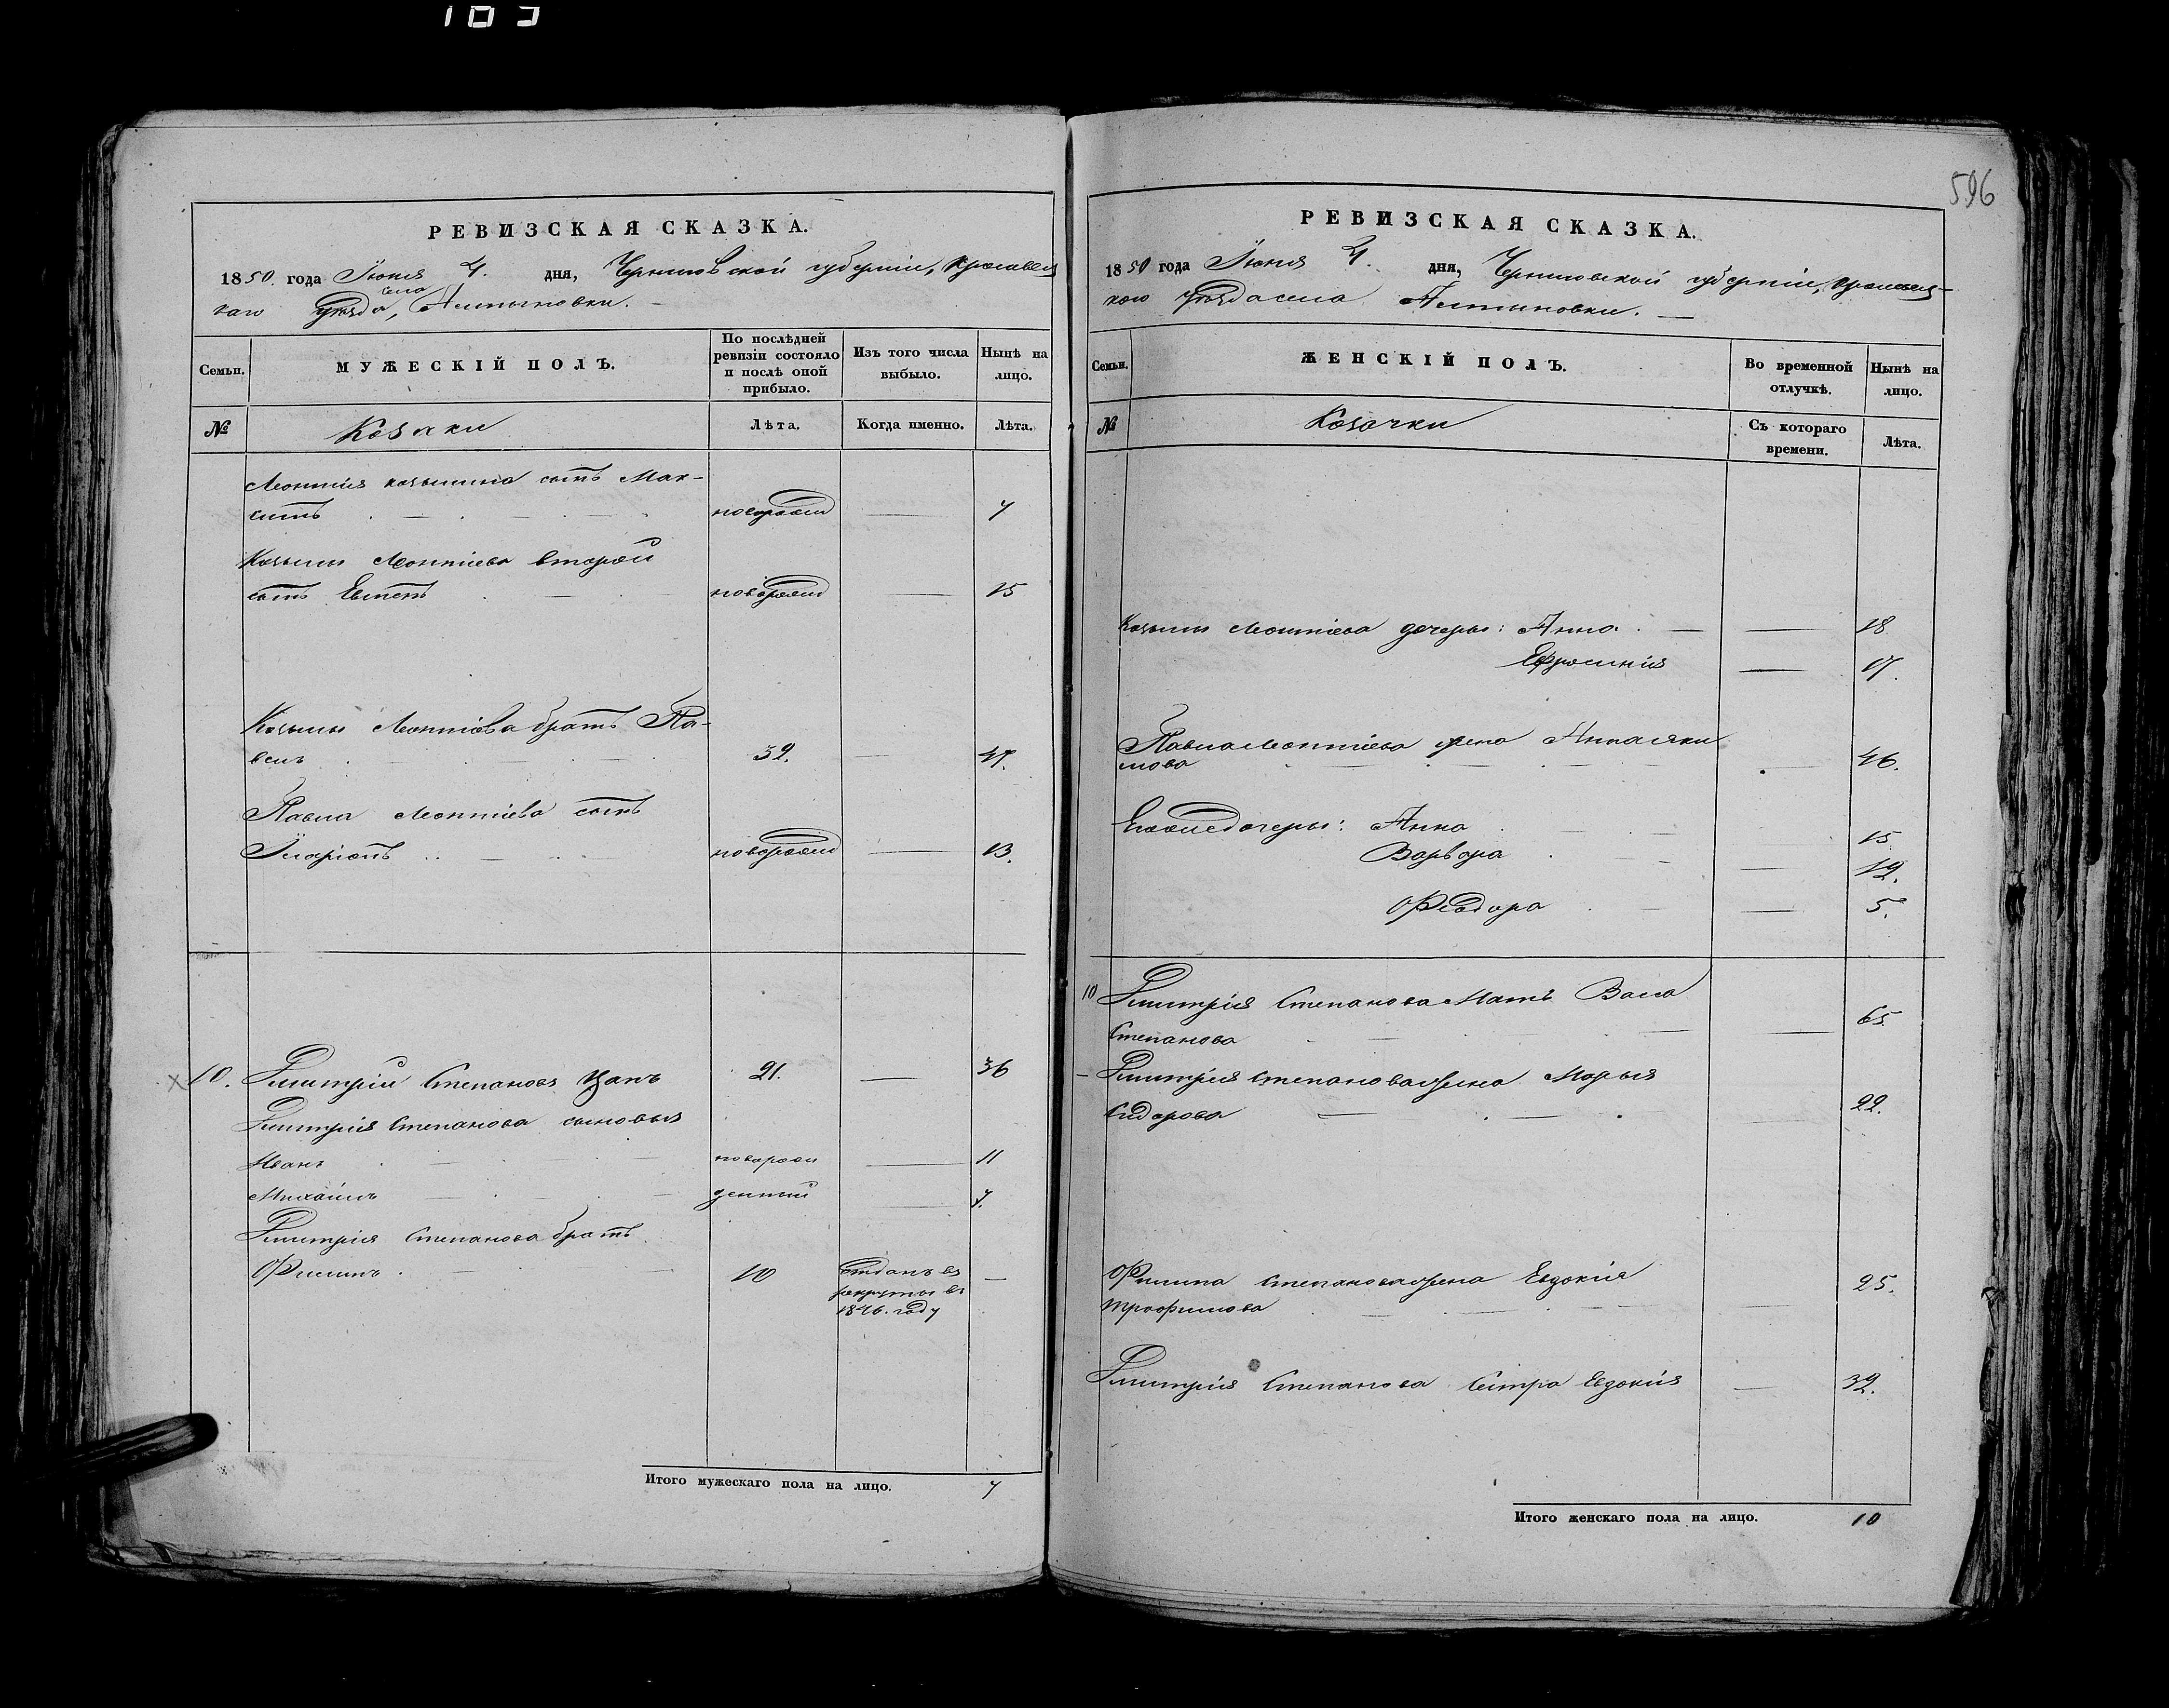 103
РЕВИЗСКАЯ СКАЗКА.
1850. года Іюня 4. дня, Черниговской губерніи, Кролевец
каго уѣзда, села Алтыновки.
Семьи.
МУЖЕСКІЙ ПОЛЪ.
По послѣдней ревизіи состояло и послѣ оной прибыло.
Изъ того числа выбыло.
Нынѣ на лицо.
№
Козаки
Лѣта.
Когда именно.
Лѣта.
Леонтія козьмина сынъ Мак-
симъ новорожд 7
Козьмы Леонтіева второй
сынъ Евменъ новорожд 15
Козьмы Леонтіева братъ Па-
велъ 32. 47.
Павла Леонтіева сынъ
Иларіонъ новорожд 13.
10. Дмитрій Степановъ Цапъ 21. 36
Дмитрія Степанова сыновья
Иванъ новорож 11
Михаилъ денный 7.
Дмитрія Степанова братъ
Филипъ 10 отданъ въ
рекруты въ
1846. году
Итого мужескаго пола на лицо. 7
596
РЕВИЗСКАЯ СКАЗКА.
1850 года Іюня 4. дня, Черниговской губерніи, Кролевец-
каго уѣзда села Алтыновки.
Семьи.
ЖЕНСКІЙ ПОЛЪ.
Во временной отлучкѣ.
Нынѣ на лицо.
№
Козачки
Съ котораго времени.
Лѣта.
Козьмы Леонтіева дочеры: Анна 18
Ефросинія 17.
Павла Леонтіева жена Анна Яки
мова 46.
Ево дочеры: Анна 15.
Варвара 12.
Феодора 5.
10 Дмитрія Степанова Мать Васа
Степанова 65.
Дмитрія Степанова жена Марья
Сидорова 22.
Филипа Степанова жена Евдокія
Трофимова 25.
Дмитрія Степанова Сестра Евдокія 32.
Итого женскаго пола на лицо. 10